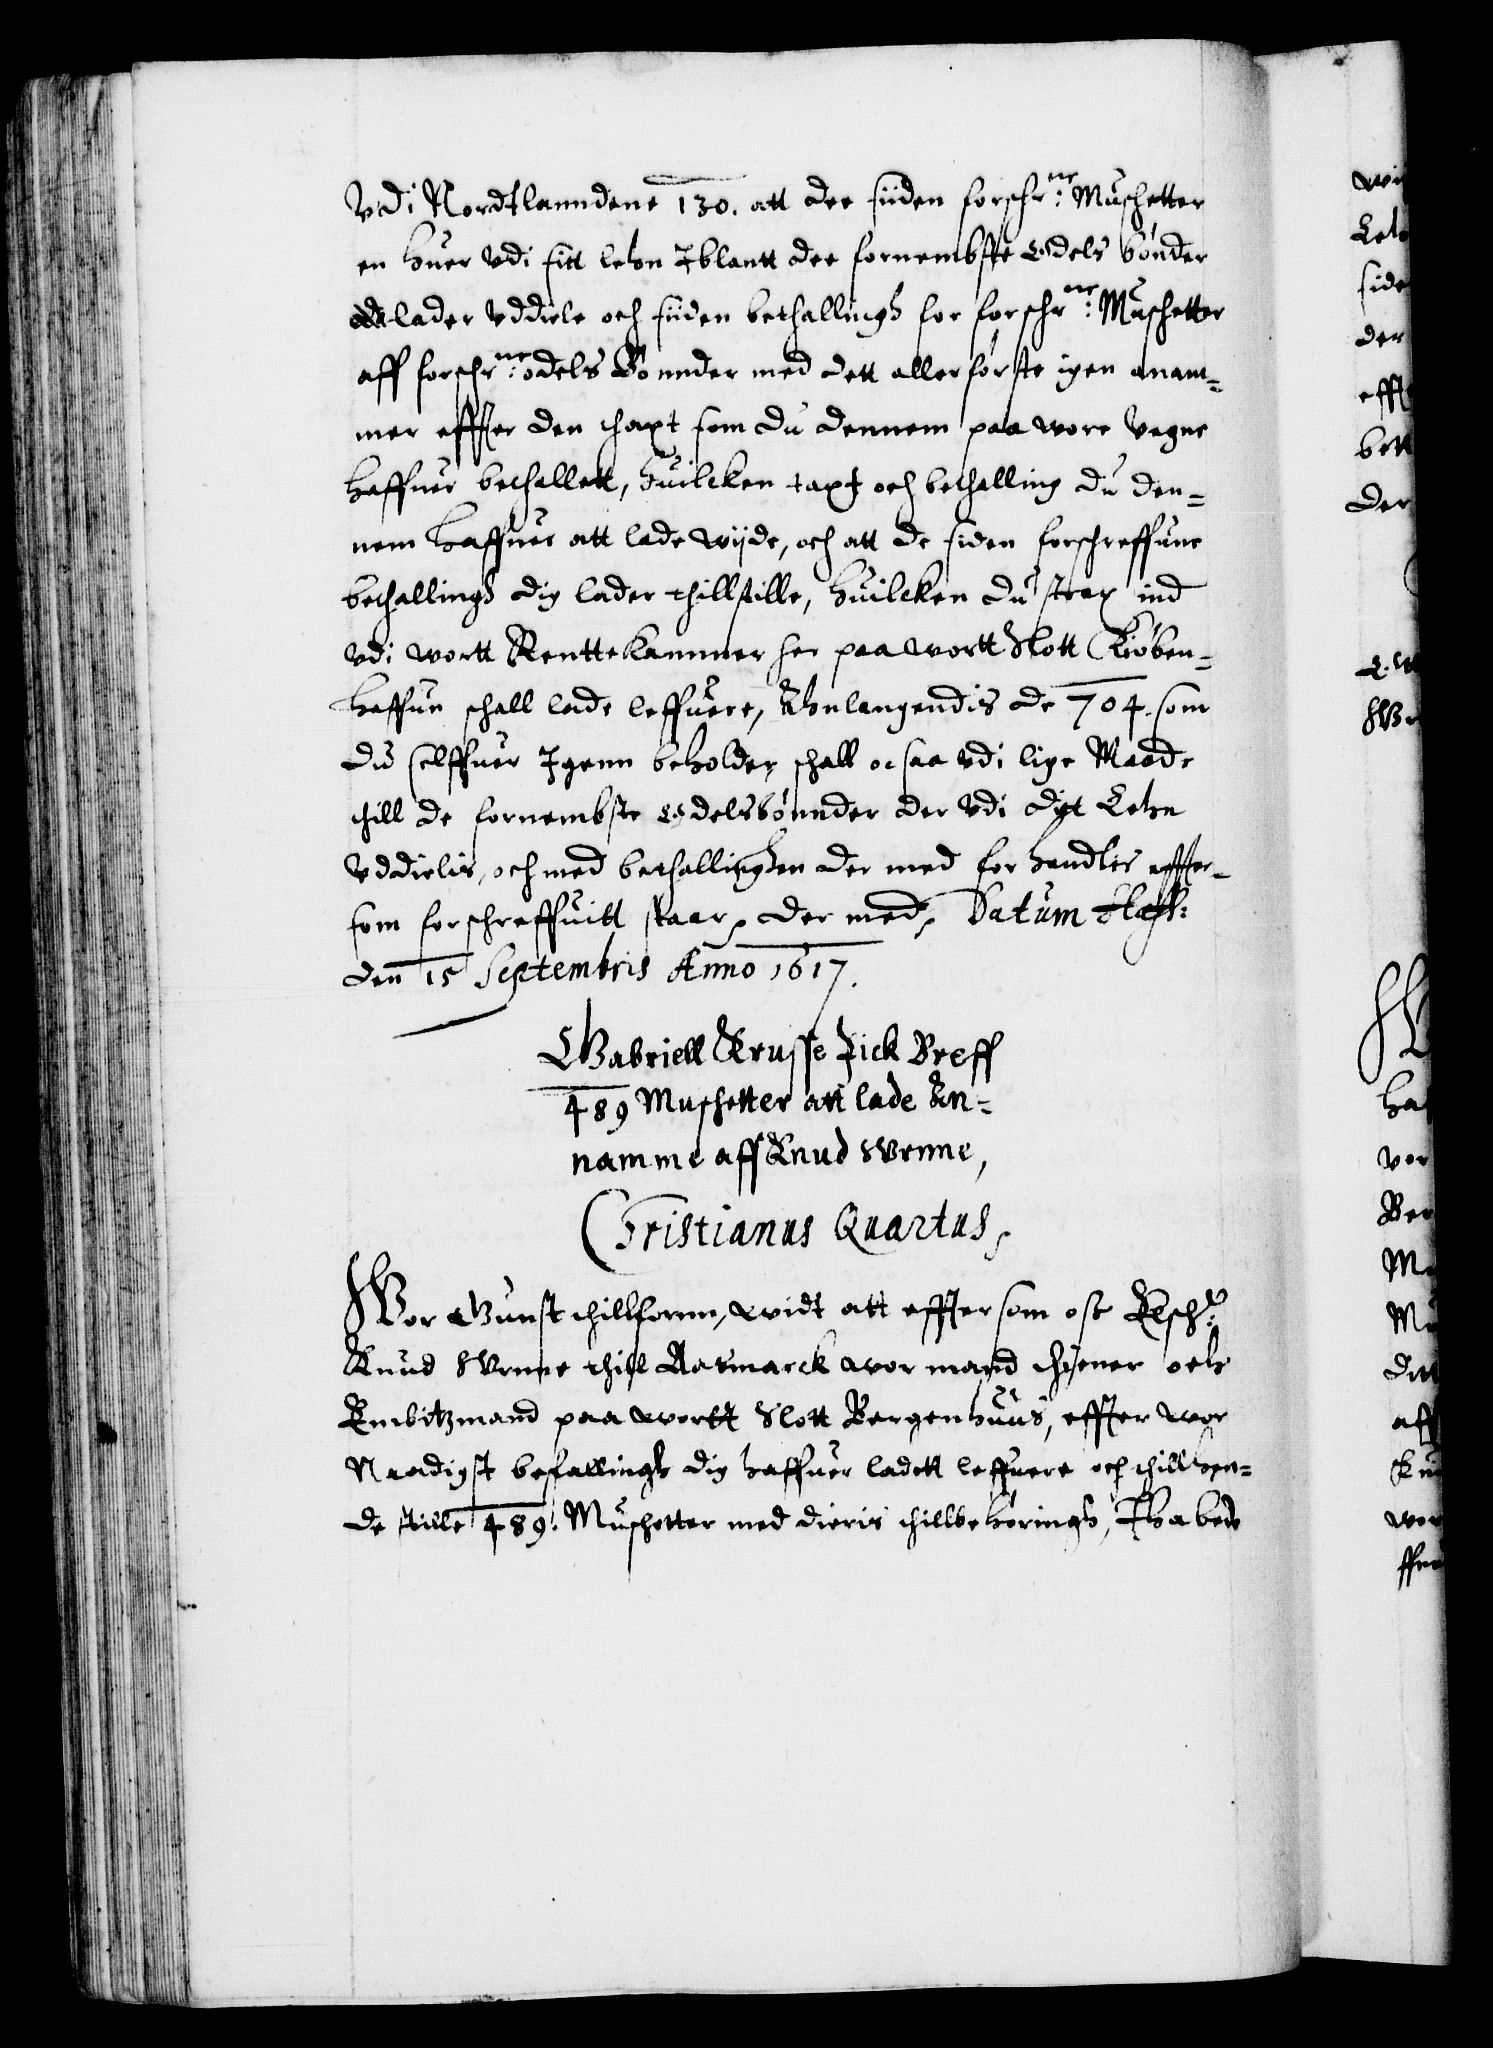 Vdi Nordtlanndene 130. att dee siiden forschr:ne Muschetter
en huer vdi sitt lehn Iblantt dee fornembste Odels bønder
lader vddiele och siiden bethallingh for forschr:ne Muschetter
aff forschr:ne odels Bønnder med dett allerførste igen anam-
mer effter den thaxt som du dennem paa wore vegne
haffuer bethallett, huilcken taxt och bethalling du den-
nem haffuer att lade wijde, och att de siden forschreffune
bethallingh dig lader thillstille, huilcken du strax ind
vdi wortt Renttekammer her paa wortt Slott Kiøben-
haffun schall lade leffuere, Anlangendis de 704. som
du selffuer Igenn beholder, schall ocsaa vdi lige Maade
thill de fornembste Odelsbønnder der vdi dijt Lehn
vddielis, och med bethallinghen der med forhandlis effter-
som forschreffuitt staar, der med, Datum Haff:
den 15 Septembris Anno 1617.
Gabriell Krusse fick Breff
489 Muschetter att lade An-
namme aff Knud Vrnne,
Christianus Quartus,
Wor Gunst thillforn, widt att effter som oss Elsch:
Knud Vrnne thill Aasmarck wor mand thiener och
Embitzmand paa wortt Slott Bergenhuus, effter wor
Naadigst befallingh dig haffuer ladett leffuere och thillhen-
de stille 489. Muschetter med dieris thillbehøringh, Tha bede